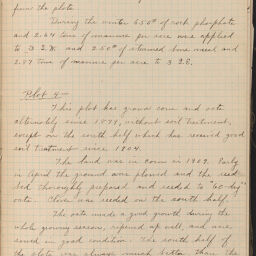 from the plots.
During the winter 650# of rock phosphate
and 2.64 tons of manure per acre was applied
to 3 2 N. and 250# of steamed bone meal and
2.87 tons of manure per acre to 3 2 S.
Plot 4 —
This plot has grown corn and oats
alternately since 1879, without soil treatment,
except on the south half which has received good
soil treatment since 1904.
The land was in corn in 1909. Early
in April the ground was plowed and the seed
bed thoroughly prepared and seeded to "60-day"
oats. Clover was seeded on the south half.
The oats made a good growth during the
whole growing season, ripened up well, and were
saved in good condition. The south half of
the plots was always much better than the